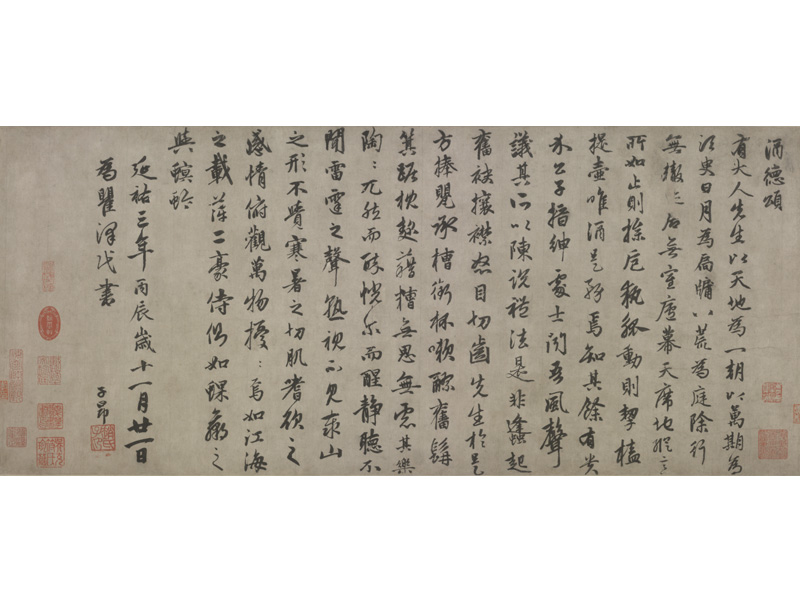 酒德頌
有大人先生以天地為一朝以萬期為
須臾日月為扃牖八荒為庭除行
無轍跡居無室廬幕天席地縱意
所如止則操卮執觚動則挈榼
提壺唯酒是務焉知其餘有貴
介公子搢紳處士聞吾風聲
議其所以陳說禮法是非蠭起
奮袂攘襟怒目切齒先生於是
方捧甖承槽銜杯漱醪奮髯
箕踞枕麴藉糟無思無慮其樂
陶〻兀然而醉恍尔而醒靜聽不
聞雷霆之聲孰視不見泰山
之形不覺寒暑之切肌嗜欲之
感情俯觀萬物擾〻焉如江海
之載萍二豪侍側如蜾蠃之
與螟蛉
延祐三年丙辰歲十一月廿一日
為瞿澤民書
子昂